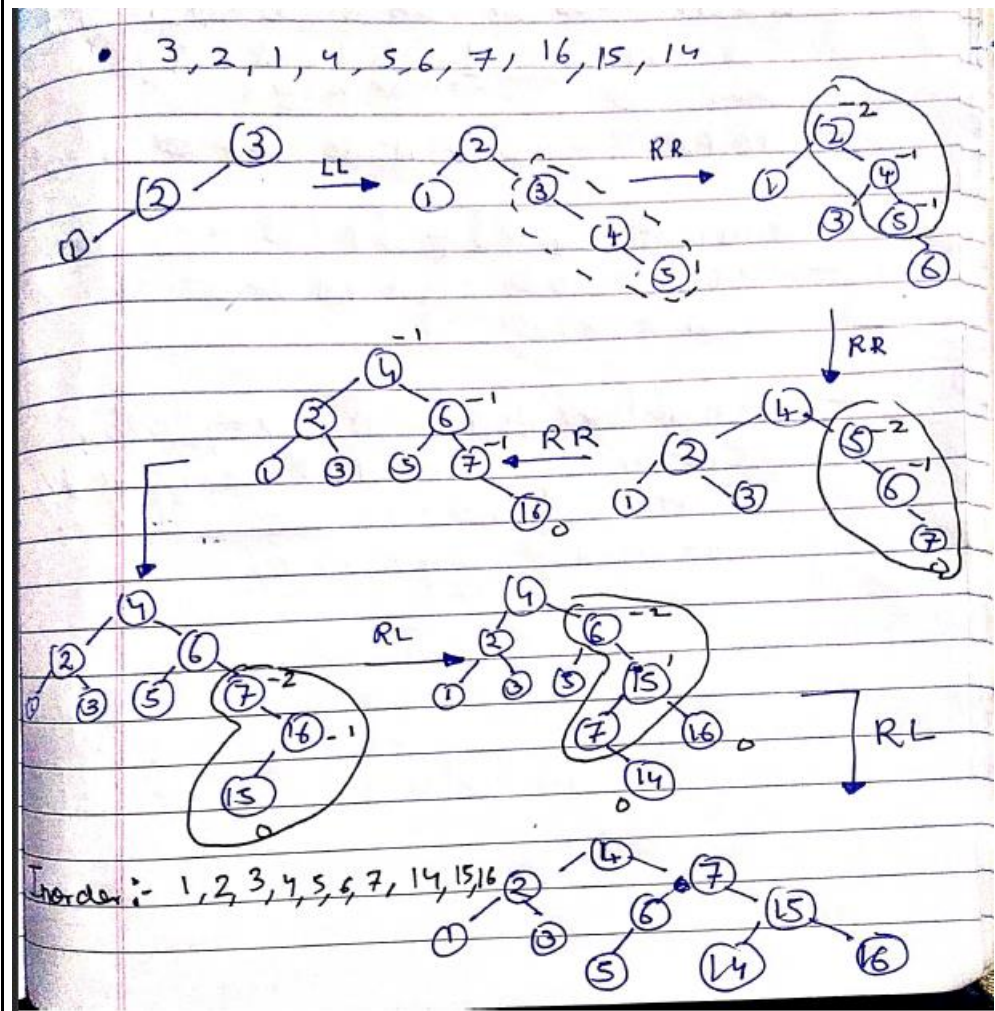 • 3, 2, 1, 4, 5, 6, 7, 16, 15, 14
3 2 1
LL
2 1 3 4 5
RR
2 -2 1 4 -1 3 5 -1 6
RR
4 -1 2 6 -1 1 3 5 7 -1 16 0
RR
4 2 5 -2 1 3 6 -1 7 0
4 2 6 1 3 5 7 -2 16 -1 15 0
RL
4 2 6 -2 1 3 5 15 1 7 16 0 14 0
RL
Inorder :- 1, 2, 3, 4, 5, 6, 7, 14, 15, 16
4 2 7 1 3 6 15 5 14 16